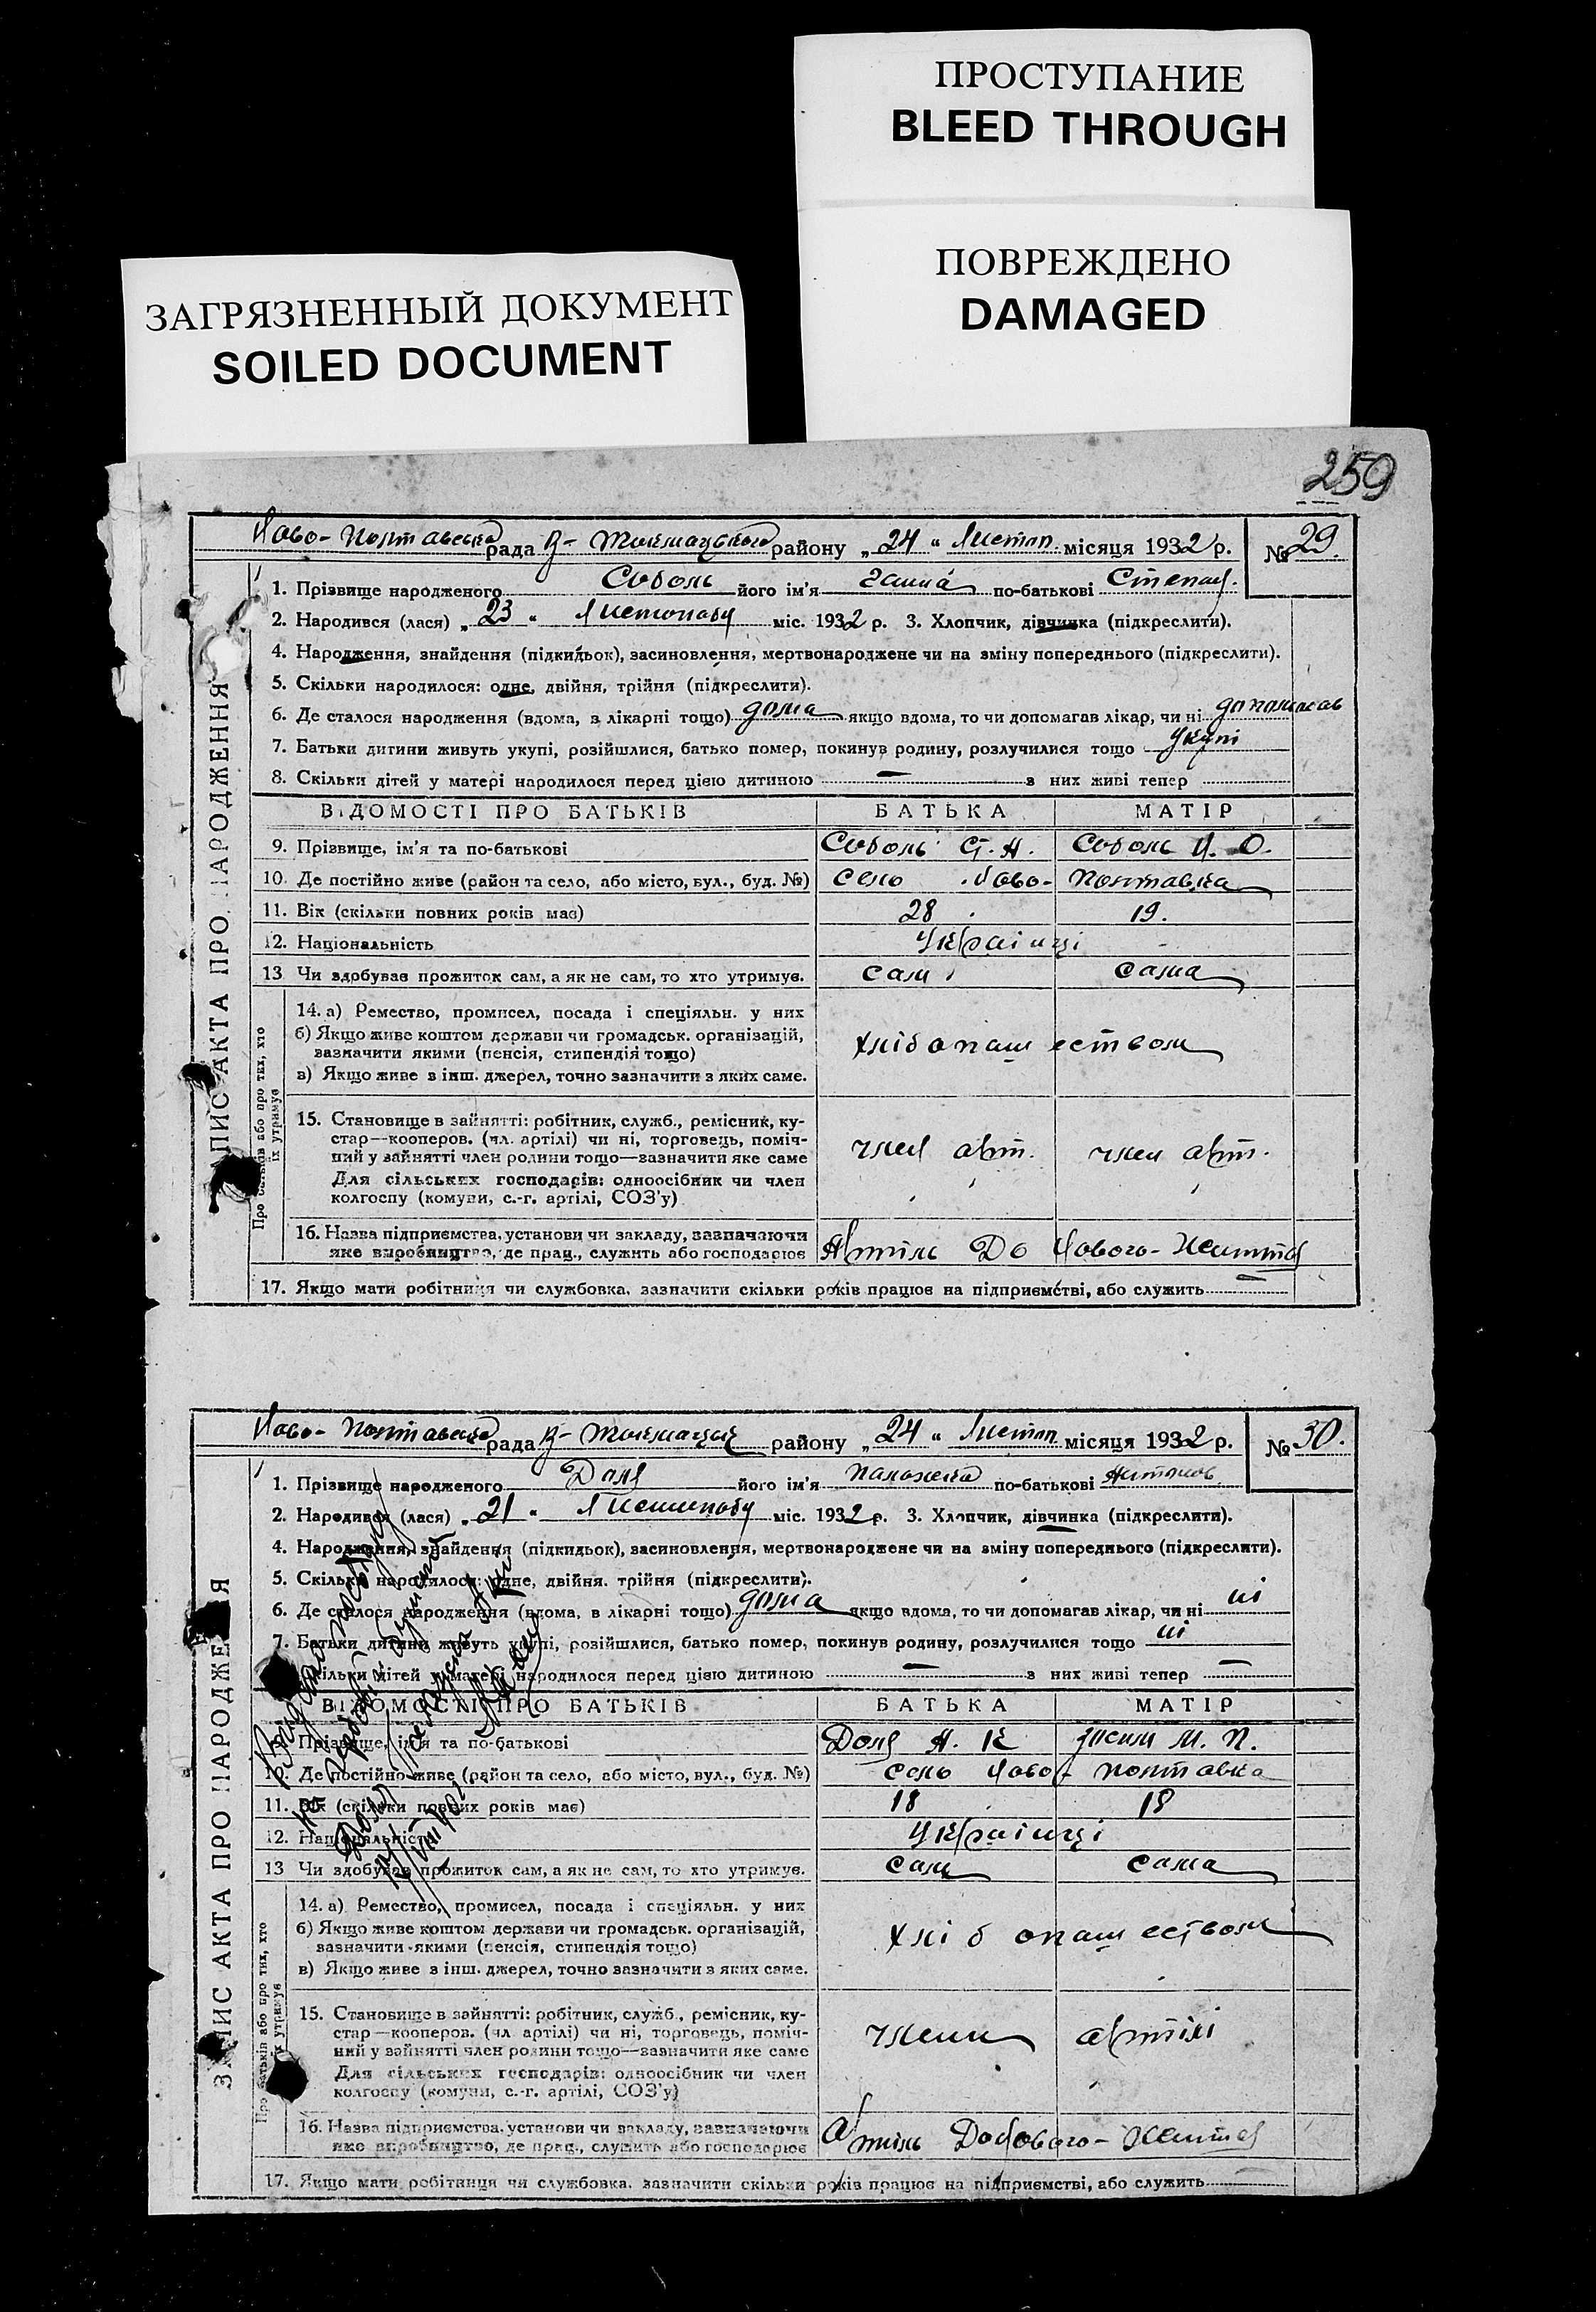 ПРОСТУПАНИЕ
BLEED THROUGH
ПОВРЕЖДЕНО
DAMAGED
ЗАГРЯЗНЕННЫЙ ДОКУМЕНТ
SOILED DOCUMENT
259
Ново-Полтавська рада В-Токмацького району „24“ Листоп. місяця 1932 р. № 29.
ЗАПИС АКТА ПРО НАРОДЖЕННЯ
1. Прізвище народженого Соболь його ім'я Ганна по-батькові Степан.
2. Народився (лася) „23“ Листопаду міс. 1932 р. 3. Хлопчик, дівчинка (підкреслити).
4. Народження, знайдення (підкидьок), засиновлення, мертвонароджене чи на зміну попереднього (підкреслити).
5. Скільки народилося: одне, двійня, трійня (підкреслити).
6. Де сталося народження (вдома, в лікарні тощо) дома якщо вдома, то чи допомагав лікар, чи ні допомагав
7. Батьки дитини живуть укупі, розійшлися, батько помер, покинув родину, розлучилися тощо Укупі
8. Скільки дітей у матері народилося перед цією дитиною — з них живі тепер
ВІДОМОСТІ ПРО БАТЬКІВ БАТЬКА МАТІР
9. Прізвище, ім'я та по-батькові Соболь С. А. Соболь Н. О.
10. Де постійно живе (район та село, або місто, вул., буд. №) село Ново-Полтавка
11. Вік (скільки повних років має) 28 19.
12. Національність Українці
13 Чи здобував прожиток сам, а як не сам, то хто утримує. сам сама
Про батьків або про тих, хто їх утримує
14. а) Ремество, промисел, посада і спеціяльн. у них
б) Якщо живе коштом держави чи громадськ. організацій,
зазначити якими (пенсія, стипендія тощо) хлібопашеством
в) Якщо живе з інш. джерел, точно зазначити з яких саме.
15. Становище в зайнятті: робітник, служб., ремісник, ку-
стар—кооперов. (чл. артілі) чи ні, торговець, поміч-
ний у зайнятті член родини тощо—зазначити яке саме член арт. член арт.
Для сільських господарів: одноосібник чи член
колгоспу (комуни, с.-г. артілі, СОЗ'у)
16. Назва підприємства, установи чи закладу, зазначаючи
яке виробництво, де прац., служить або господарює Артіль До Нового-Життя
17. Якщо мати робітниця чи службовка, зазначити скільки років працює на підприємстві, або служить —
Ново-Полтавська рада В-Токмацьк району „24“ Листоп. місяця 1932 р. № 30.
ЗАПИС АКТА ПРО НАРОДЖЕННЯ
1. Прізвище народженого Доля його ім'я Палажка по-батькові Антонов.
2. Народився (лася) „21“ Листопаду міс. 1932 р. 3. Хлопчик, дівчинка (підкреслити).
4. Народження, знайдення (підкидьок), засиновлення, мертвонароджене чи на зміну попереднього (підкреслити).
5. Скільки народилося: одне, двійня, трійня (підкреслити).
6. Де сталося народження (вдома, в лікарні тощо) дома якщо вдома, то чи допомагав лікар, чи ні ні
7. Батьки дитини живуть укупі, розійшлися, батько помер, покинув родину, розлучилися тощо ні
8. Скільки дітей у матері народилося перед цією дитиною — з них живі тепер —
ВІДОМОСТІ ПРО БАТЬКІВ БАТЬКА МАТІР
9. Прізвище, ім'я та по-батькові Доля А. К М. П.
10. Де постійно живе (район та село, або місто, вул., буд. №) село Ново-Полтавка
11. Вік (скільки повних років має) 18 18
12. Національність Українці
13 Чи здобував прожиток сам, а як не сам, то хто утримує. сам сама
Про батьків або про тих, хто їх утримує
14. а) Ремество, промисел, посада і спеціяльн. у них
б) Якщо живе коштом держави чи громадськ. організацій,
зазначити якими (пенсія, стипендія тощо) хлібопашеством
в) Якщо живе з інш. джерел, точно зазначити з яких саме.
15. Становище в зайнятті: робітник, служб., ремісник, ку-
стар—кооперов. (чл. артілі) чи ні, торговець, поміч-
ний у зайнятті член родини тощо—зазначити яке саме члени артілі
Для сільських господарів: одноосібник чи член
колгоспу (комуни, с.-г. артілі, СОЗ'у)
16. Назва підприємства, установи чи закладу, зазначаючи
яке виробництво, де прац., служить або господарює Артіль До Нового-Життя
17. Якщо мати робітниця чи службовка, зазначити скільки років працює на підприємстві, або служить